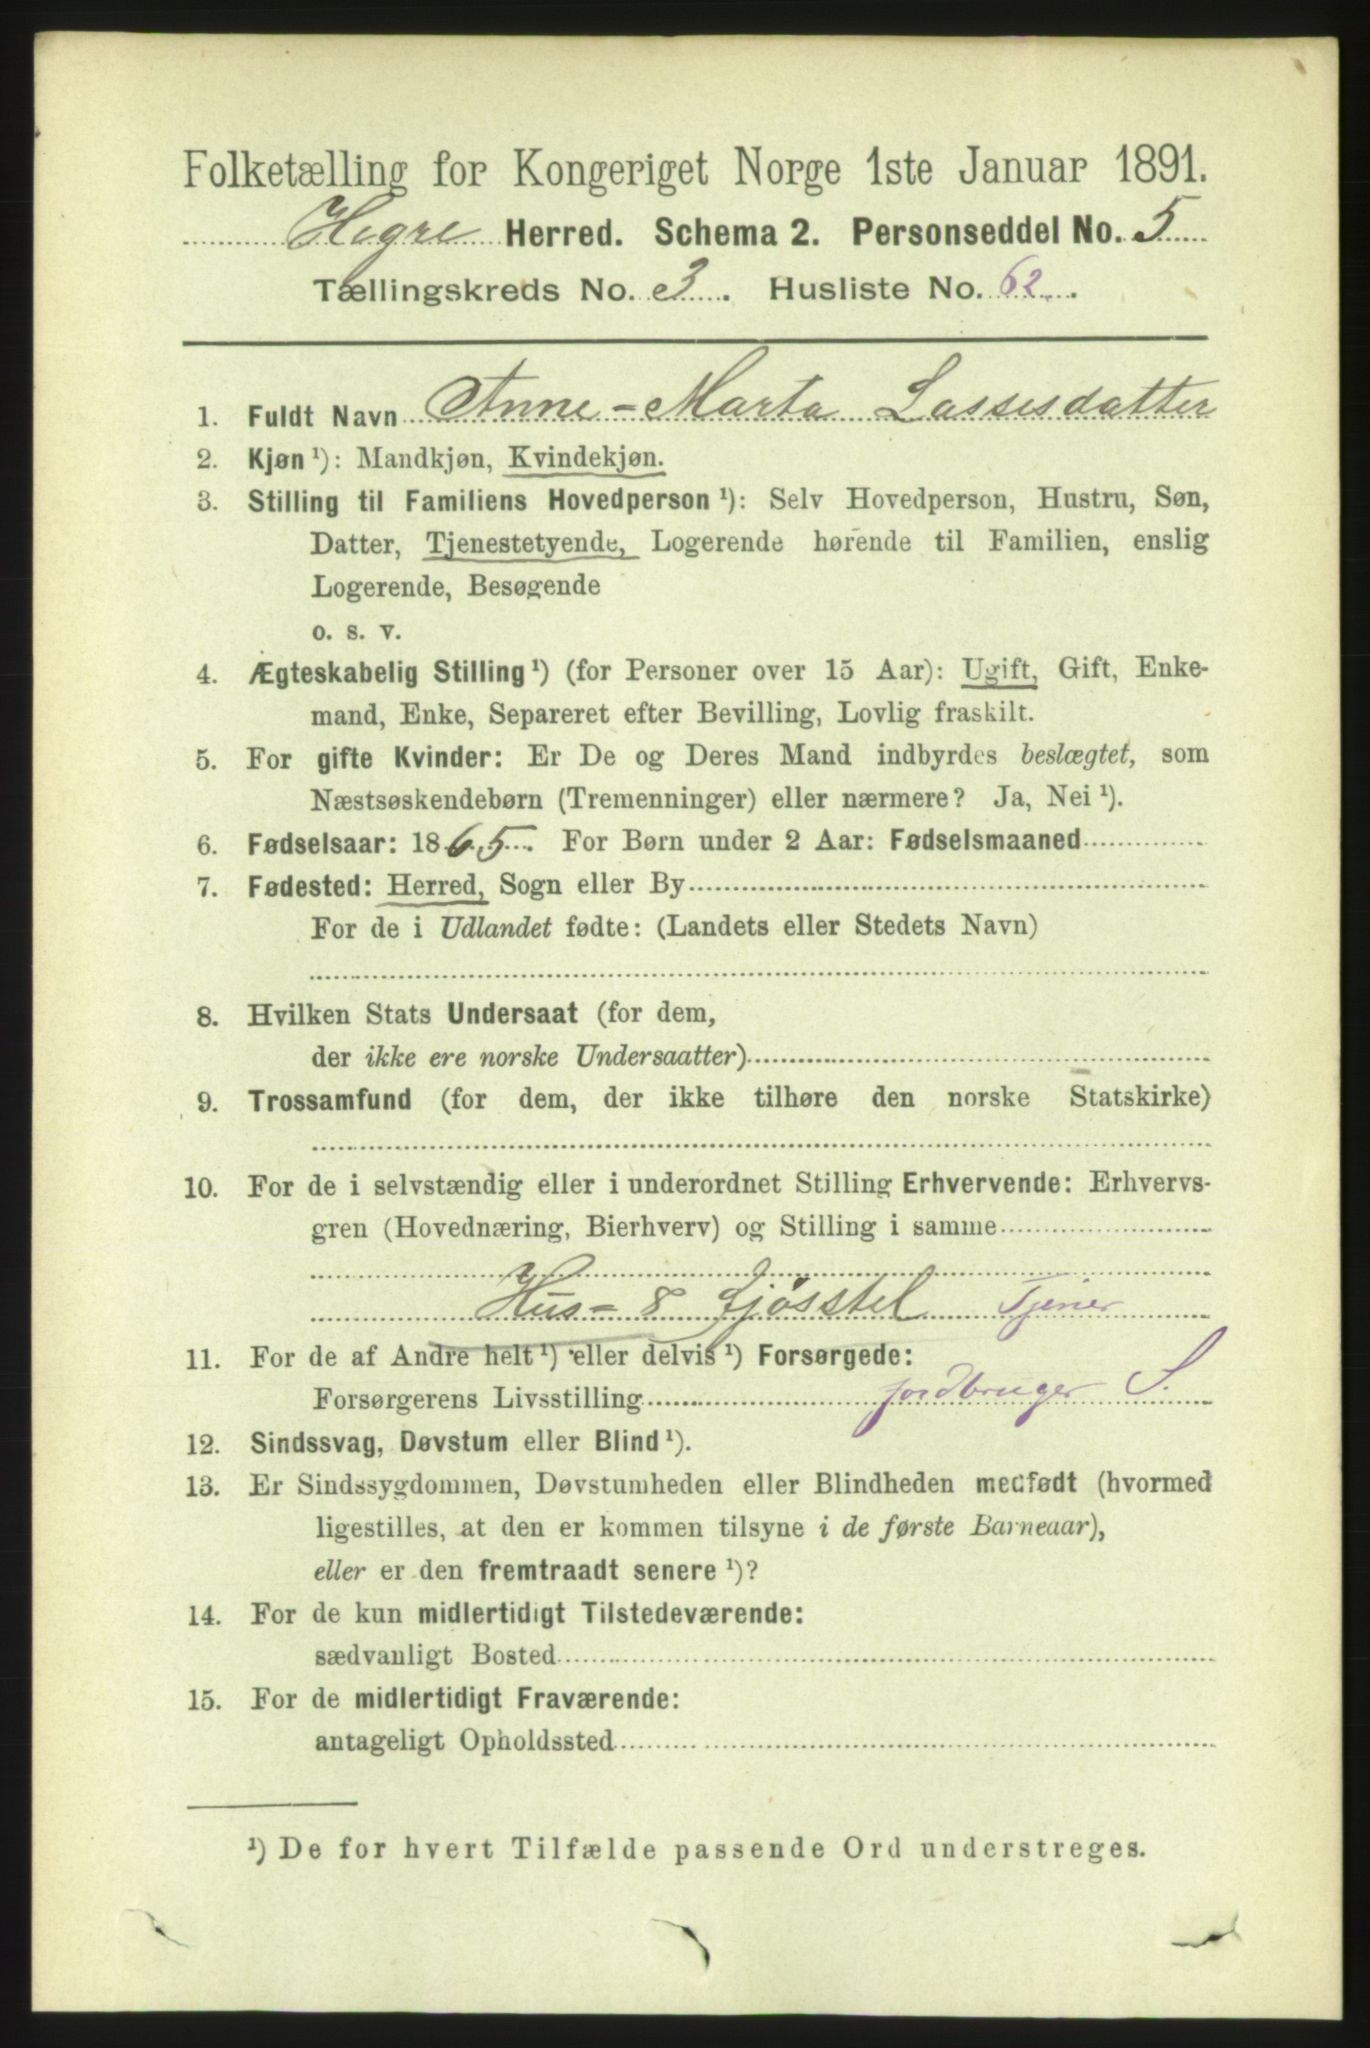 Folketælling for Kongeriget Norge 1ste Januar 1891.
Hegre Herred. Schema 2. Personseddel No. 5
Tællingskreds No. 3. Husliste No. 62.
1. Fuldt Navn Anne-Marta Lassesdatter
2. Kjøn ¹): Mandkjøn, Kvindekjøn.
3. Stilling til Familiens Hovedperson ¹): Selv Hovedperson, Hustru, Søn,
Datter, Tjenestetyende, Logerende hørende til Familien, enslig
Logerende, Besøgende
o. s. v.
4. Ægteskabelig Stilling ¹) (for Personer over 15 Aar): Ugift, Gift, Enke-
mand, Enke, Separeret efter Bevilling, Lovlig fraskilt.
5. For gifte Kvinder: Er De og Deres Mand indbyrdes beslægtet, som
Næstsøskendebørn (Tremenninger) eller nærmere? Ja, Nei ¹).
6. Fødselsaar: 1865. For Børn under 2 Aar: Fødselsmaaned
7. Fødested: Herred, Sogn eller By
For de i Udlandet fødte: (Landets eller Stedets Navn)
8. Hvilken Stats Undersaat (for dem,
der ikke ere norske Undersaatter)
9. Trossamfund (for dem, der ikke tilhøre den norske Statskirke)
10. For de i selvstændig eller i underordnet Stilling Erhvervende: Erhvervs-
gren (Hovednæring, Bierhverv) og Stilling i samme
Hus- & fjøsstel Tjener
11. For de af Andre helt ¹) eller delvis ¹) Forsørgede:
Forsørgerens Livsstilling jordbruger S.
12. Sindssvag, Døvstum eller Blind ¹).
13. Er Sindssygdommen, Døvstumheden eller Blindheden medfødt (hvormed
ligestilles, at den er kommen tilsyne i de første Barneaar),
eller er den fremtraadt senere ¹)?
14. For de kun midlertidigt Tilstedeværende:
sædvanligt Bosted
15. For de midlertidigt Fraværende:
antageligt Opholdssted
¹) De for hvert Tilfælde passende Ord understreges.